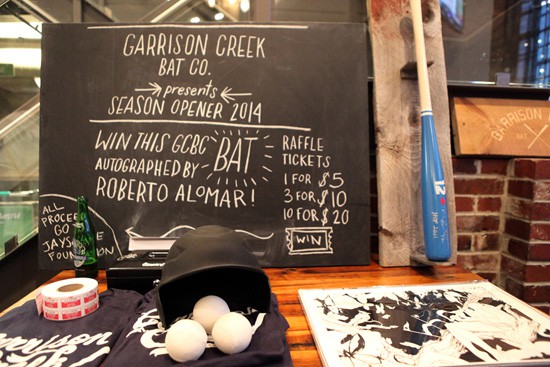 GARRISON CREEK
BAT CO.
presents
SEASON OPENER 2014
WIN THIS GCBC
BAT
AUTOGRAPHED BY
ROBERTO ALOMAR!
RAFFLE
TICKETS
1 FOR $5
3 FOR $10
10 FOR $20
WIN
ALL
GO
12
GARRISON
BAT